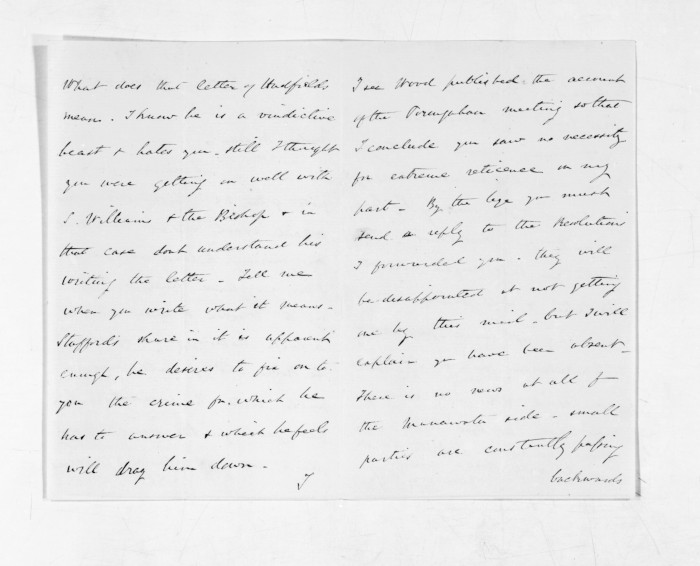 What does that letter of Hadfields
means. I know he is a vindictive
beast & hates you. still I thought
you were getting on well with
S. Williams & the Bishop & in
that case dont understand his
writing the letter. Tell me
when you write what it means.
Staffords share in it is apparent
enough, he desires to fix on to
you the crime for which he
has to answer & which he feels
will drag him down.
I see Wood published the account
of the meeting so that
I conclude you saw no necessity
for extreme reticence on my
part. By the bye you must
send a reply to the Resolutions
I forwarded you. they will
be disappointed at not getting
one by this mail. but I will
explain you have been absent.
There is no news at all fr
the Manawatu side. small
parties are constantly passing
backwards